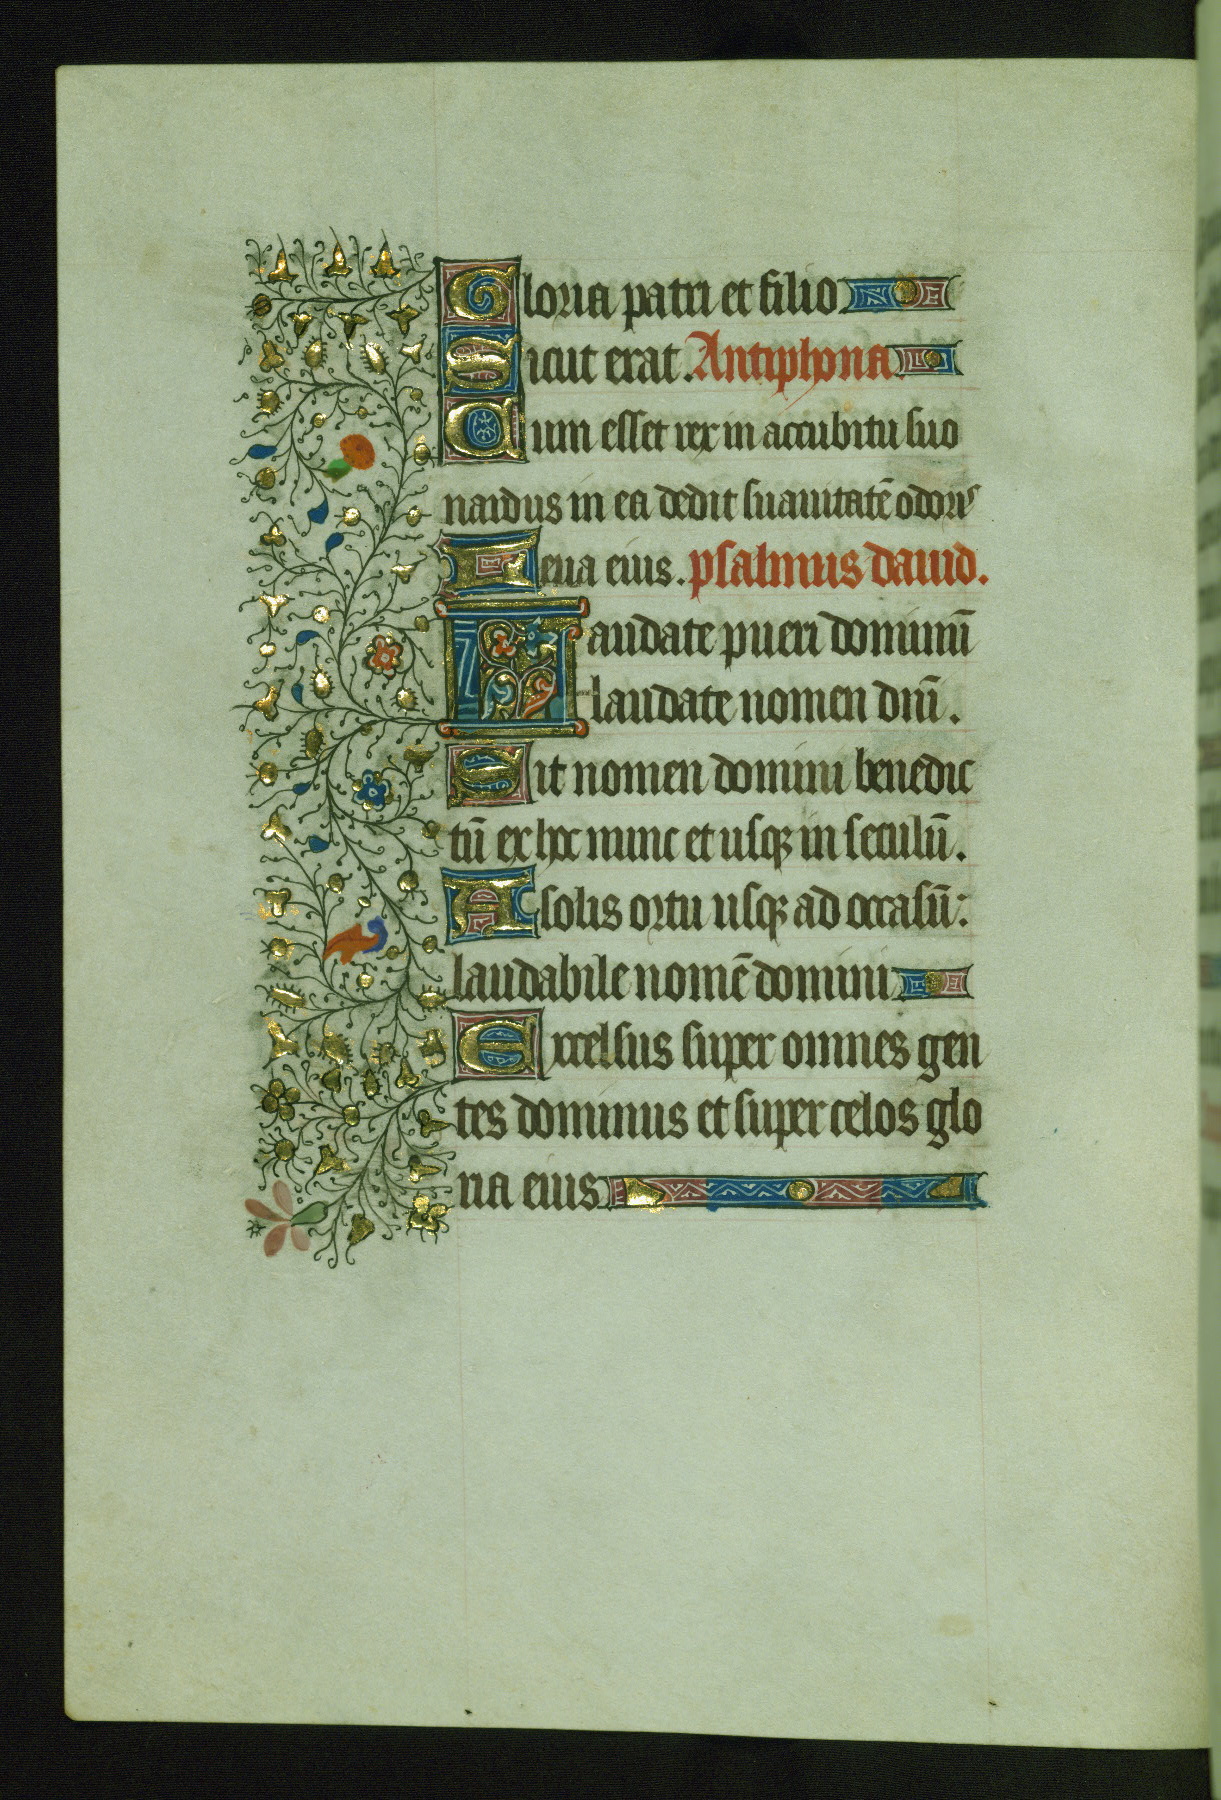 Gloria patri et filio
Sicut erat. Antiphona.
Cum esset rex in accubitu suo
nardus in ea dedit suauitatē odoris
Leua eius. psalmus dauid.
Laudate pueri dominū
laudate nomen dnī.
Sit nomen domini benedic
tū ex hoc nunc et usqꝫ in seculū.
A solis ortu usqꝫ ad occasū:
laudabile nomē domini
Excelsus super omnes gen
tes dominus et super celos glo
ria eius